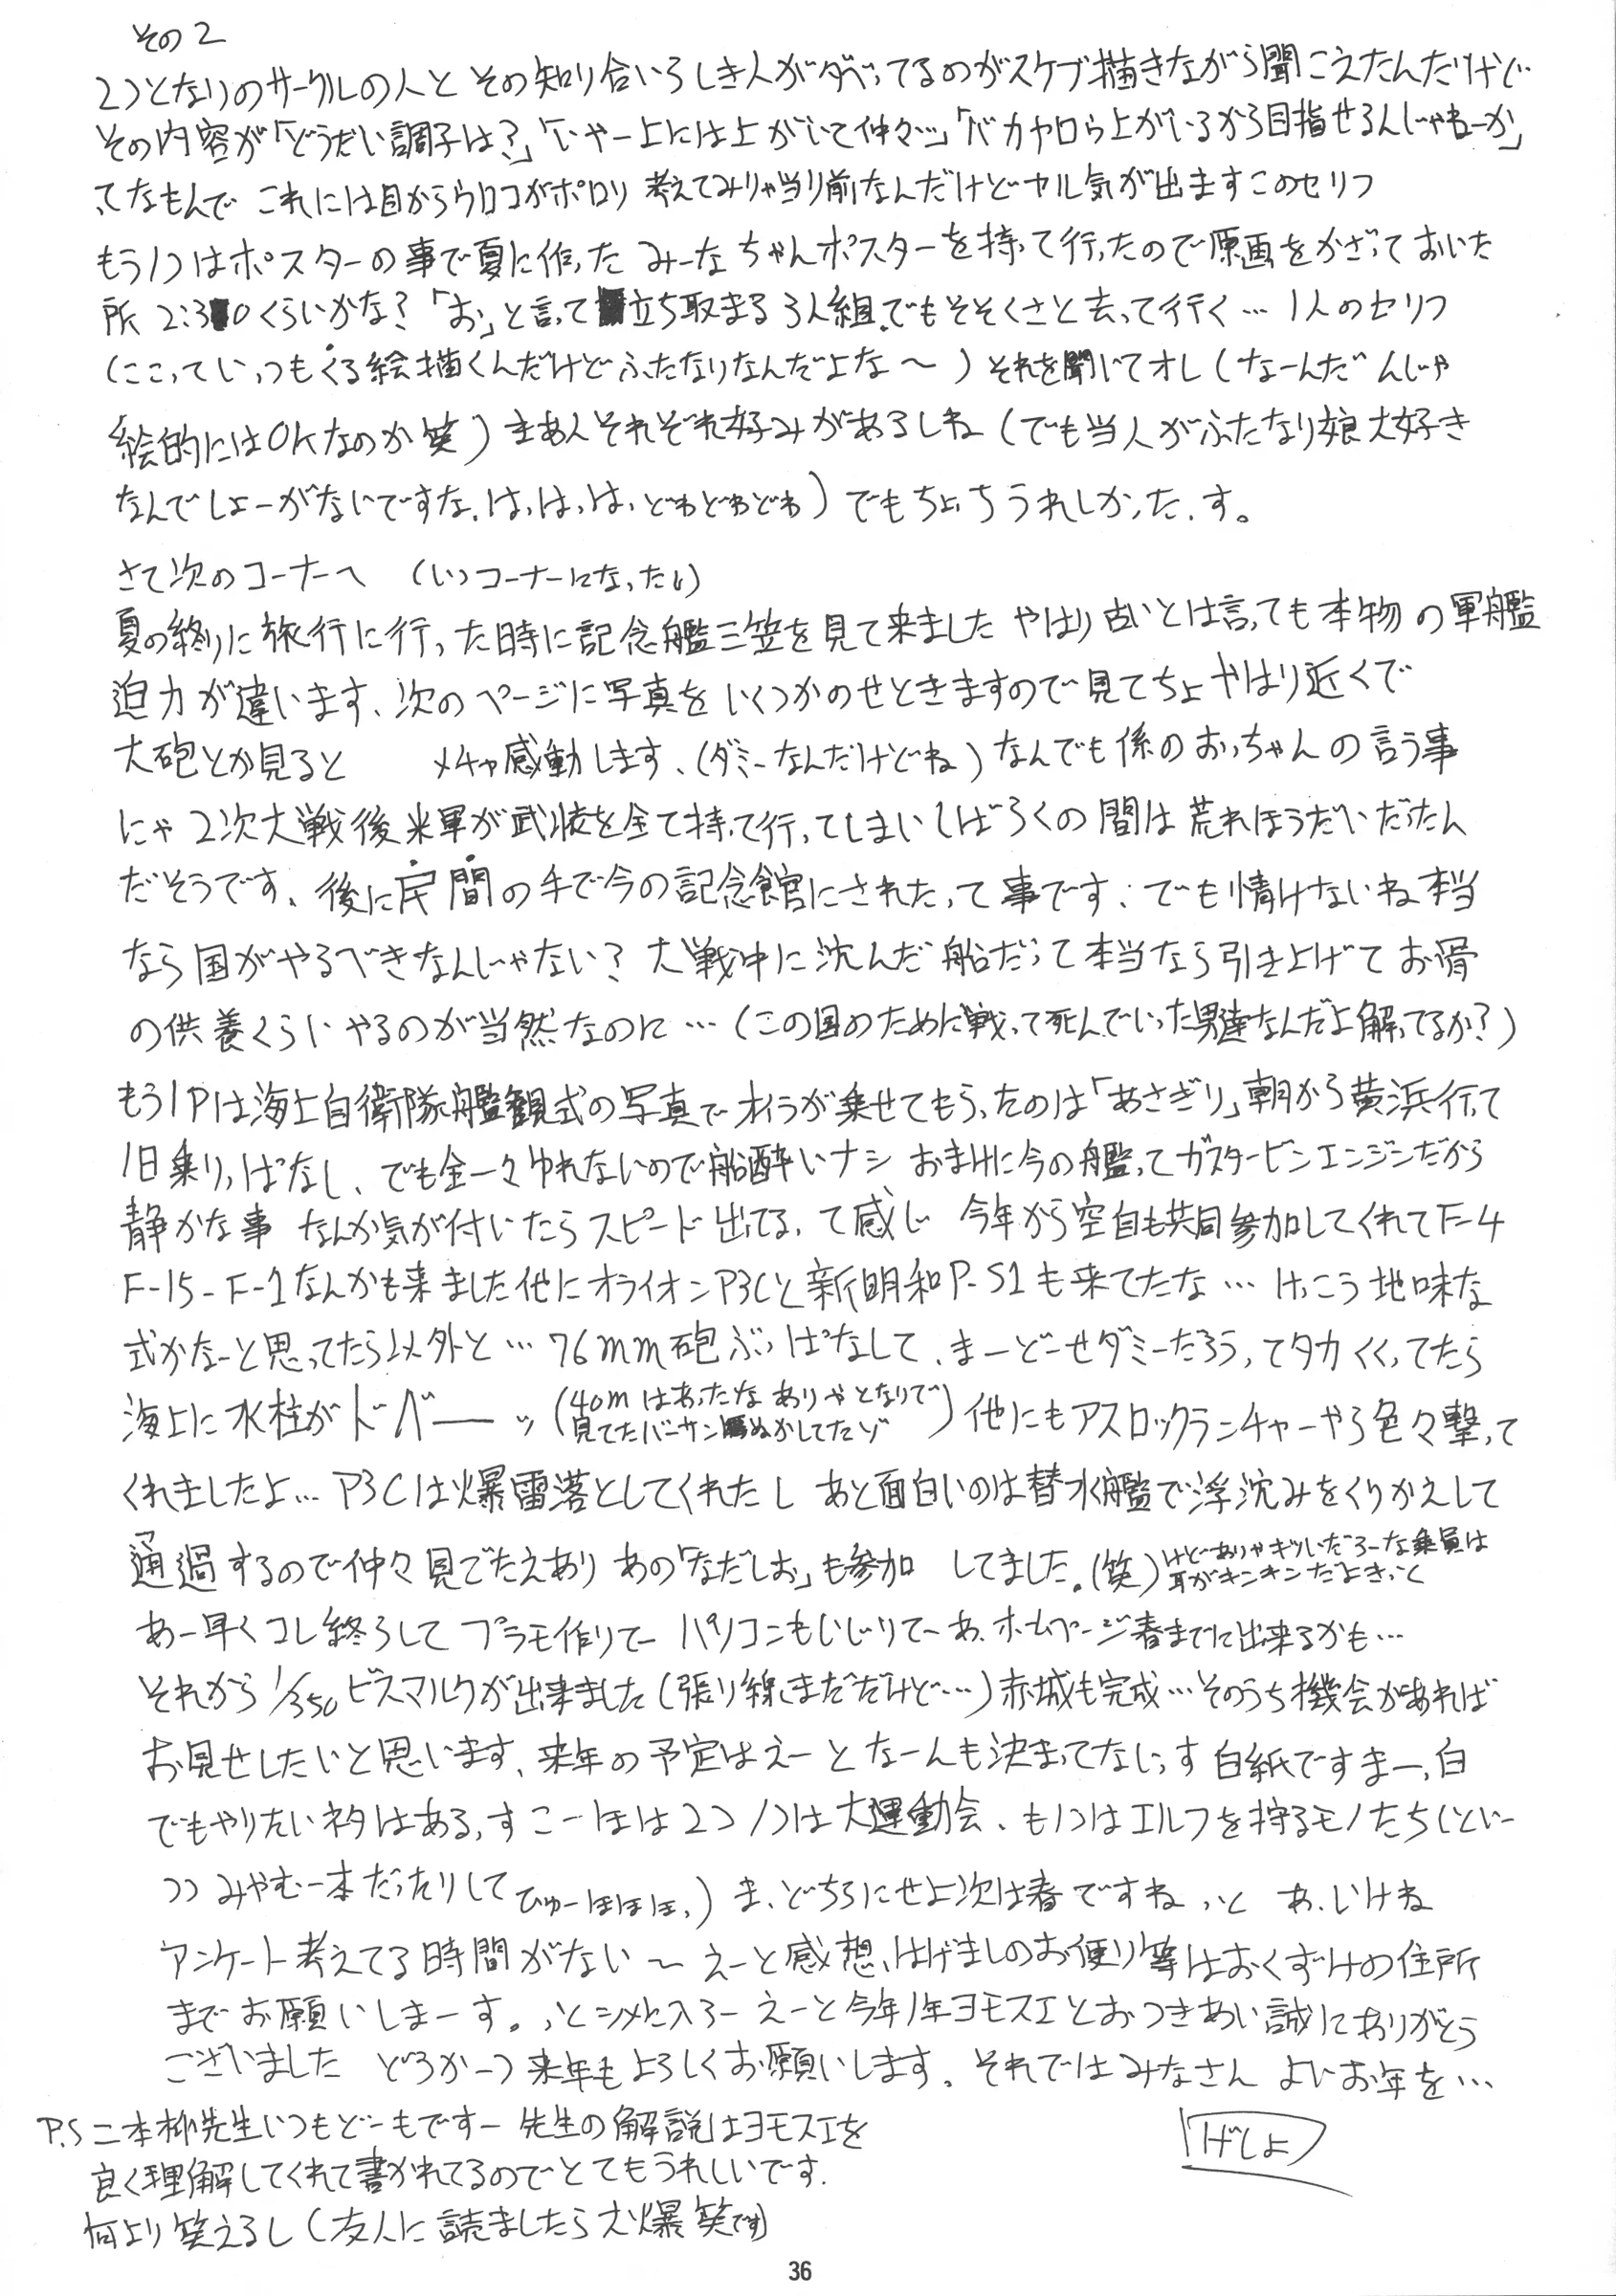 その2
2つとなりのサークルの人と その知り合いらしき人がダベってるのがスケブ描きながら聞こえたんだけど
その内容が「どうだい調子は?」「いやー上には上がいて仲々…」「バカヤロウ上がいるから目指せるんじゃねーか」
ってなもんで これには目からウロコがポロリ 考えてみりゃ当り前なんだけどヤル気が出ますこのセリフ
もう1つはポスターの事で夏に作った みーなちゃんポスターを持って行ったので原画をかざっておいた
所 2:30くらいかな?「お」と言って立ち取まる3人組でもそそくさと去って行く…1人のセリフ
(ここっていっつもくる絵描くんだけどふたなりなんだよな〜)それを聞いてオレ(なーんだ んじゃ
絵的にはOKなのか笑)まあ人それぞれ好みがあるしね(でも当人がふたなり娘大好き
なんでしょーがないですな、はっはっは、どわどわどわ)でもちょっちうれしかったっす。
さて次のコーナーへ (いつコーナーになったい)
夏の終りに旅行に行った時に記念艦三笠を見て来ました やはり古いとは言っても本物の軍艦
迫力が違います、次のページに写真をいくつかのせときますので見てちょ やはり近くで
大砲とか見ると メチャ感動します、(ダミーなんだけどね)なんでも係のおっちゃんの言う事
にゃ2次大戦後米軍が武装を全て持って行ってしまいしばらくの間は荒れほうだいだったん
だそうです、後に民間の手で今の記念館にされたって事です、でも情けないね本当
なら国がやるべきなんじゃない?大戦中に沈んだ船だって本当なら引き上げてお骨
の供養くらいやるのが当然なのに…(この国のために戦って死んでいった男達なんだよ解ってるか?)
もう1Pは海上自衛隊艦観式の写真でオイラが乗せてもらったのは「あさぎり」朝から横浜行って
1日乗りっぱなし、でも全々ゆれないので船酔いナシ おまけに今の艦ってガスタービンエンジンだから
静かな事 なんか気が付いたらスピード出てるって感じ 今年から空自も共同参加してくれてF-4
F-15-F-1なんかも来ました他にオライオンP3Cと新明和P-S1も来てたな…けっこう地味な
式かなーと思ってたら以外と…76mm砲ぶっぱなして、まーどーせダミーだろうってタカくくってたら
海上に水柱がドバーーッ(40mはあったな ありゃとなりで
見てたバーサン ぬかしてたゾ)他にもアスロックランチャーやら色々撃って
くれましたよ…P3Cは爆雷落としてくれたし あと面白いのは替水艦で浮沈みをくりかえして
通過するので仲々見でたえあり あの「なだしお」も参加 してました。(笑)けどありゃキツいだろーな乗員は
耳がキンキンだよきっと
あー早くコレ終らして プラモ作りてー パソコンもいじりてーあ、ホームページ春までに出来るかも…
それから1/350ビスマルクが出来ました(張り線まだだけど…)赤城も完成…そのうち機会があれば
お見せしたいと思います、来年の予定はえーと なーんも決まってないっす 白紙ですまーっ白
でもやりたいネタはあるっすこーほは2つ 1つは大運動会、も1つはエルフを狩るモノたち(といー
つつみやむー本だったりして ひゅーほほほっ)ま、どちらにせよ次は春ですねっと あ、いけね
アンケート考えてる時間がない〜 えーと感想、はげましのお便り等はおくずけの住所
までお願いしまーす。っとシメに入ろー えーと今年1年ヨモスエとおつきあい誠にありがとう
ございました どうか一つ来年もよろしくお願いします。それではみなさん よいお年を…
げしょ
P.S 二本柳先生いつもどーもですー 先生の解説はヨモスエを
良く理解してくれて書かれてるのでとてもうれしいです。
何より笑えるし(友人に読ましたら大爆笑です)
36